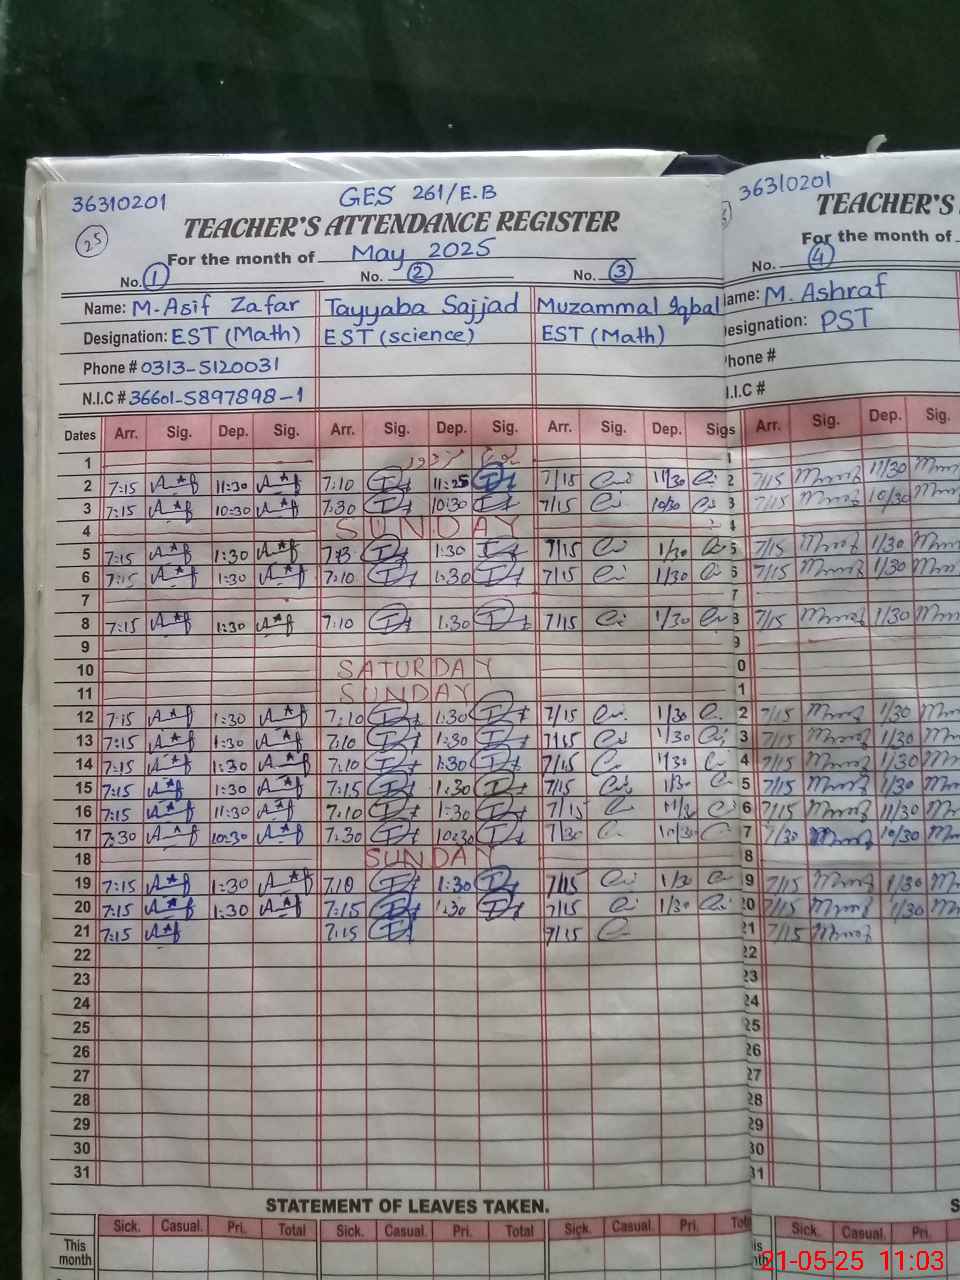 36310201 GES 261/E.B
25 TEACHER'S ATTENDANCE REGISTER
For the month of May 2025
No. 1 No. 2 No. 3
Name: M. Asif Zafar Tayyaba Sajjad Muzammal Iqbal
Designation: EST (Math) EST (science) EST (Math)
Phone # 0313-5120031
N.I.C # 36601-5897898-1
Dates Arr. Sig. Dep. Sig. Arr. Sig. Dep. Sig. Arr. Sig. Dep. Sigs
1
2 7:15 11:30 7:10 11:25 7/15 11/30
3 7:15 10:30 7:30 10:30 7/15 10/30
4 SUNDAY
5 7:15 1:30 1:30 7/15 1/30
6 7:15 1:30 7:10 1:30 7/15 1/30
7
8 7:15 1:30 7:10 1:30 7/15 1/30
9
10 SATURDAY
11 SUNDAY
12 7:15 1:30 7:10 1:30 7/15 1/30
13 7:15 1:30 7:10 1:30 7/15 1/30
14 7:15 1:30 7:10 1:30 7/15 1/30
15 7:15 1:30 7:15 1:30 7/15 1/30
16 7:15 11:30 7:10 1:30 7/15 11/30
17 7:30 10:30 7:30 10:30 7/30 10/30
18 SUNDAY
19 7:15 1:30 7:10 1:30 7/15 1/30
20 7:15 1:30 7:15 1:30 7/15 1/30
21 7:15 7:15 7/15
22
23
24
25
26
27
28
29
30
31
STATEMENT OF LEAVES TAKEN.
Sick. Casual. Pri. Total Sick. Casual. Pri. Total Sick. Casual. Pri.
This month
36310201
TEACHER'S
For the month of
No. 4
Name: M. Ashraf
Designation: PST
Phone #
N.I.C #
Arr. Sig. Dep. Sig.
2 7/15 11/30
3 7/15 10/30
4
5 7/15 1/30
6 7/15 1/30
7
8 7/15 1/30
9
0
1
2 7/15 1/30
3 7/15 1/30
4 7/15 1/30
5 7/15 1/30
6 7/15 11/30
7 7/30 10/30
8
9 7/15 1/30
20 7/15 1/30
21 7/15
22
23
24
25
26
27
28
29
30
31
Sick. Casual. Pri.
21-05-25 11:03